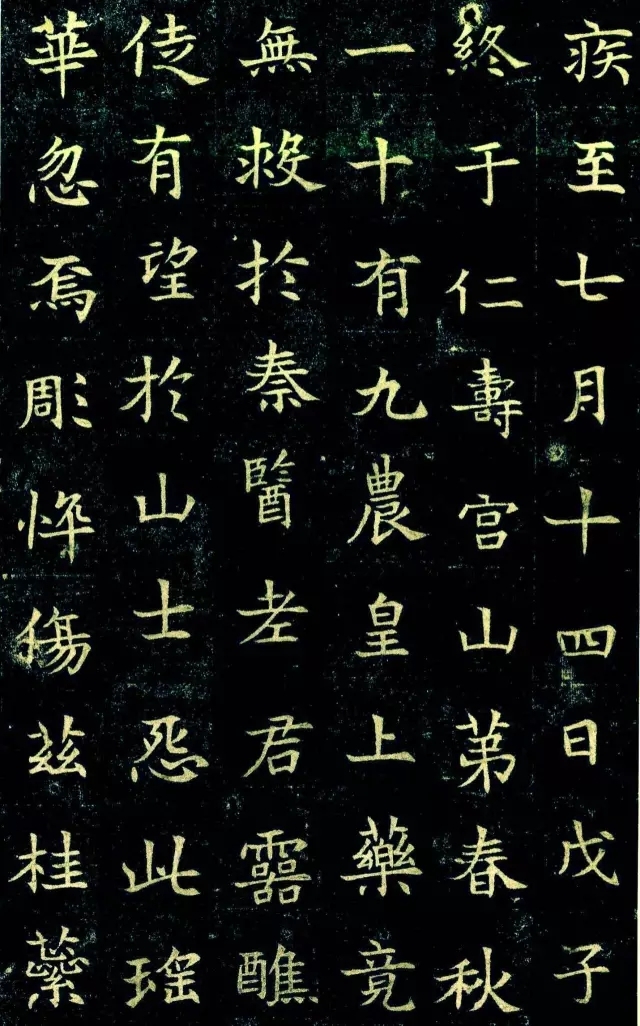 疾至七月十四日戊子
終于仁壽宫山苐春秋
一十有九農皇上藥竟
無救於秦醫老君靈醮
徒有望於山士怨此瑶
華忽焉彫忰傷兹桂蘂